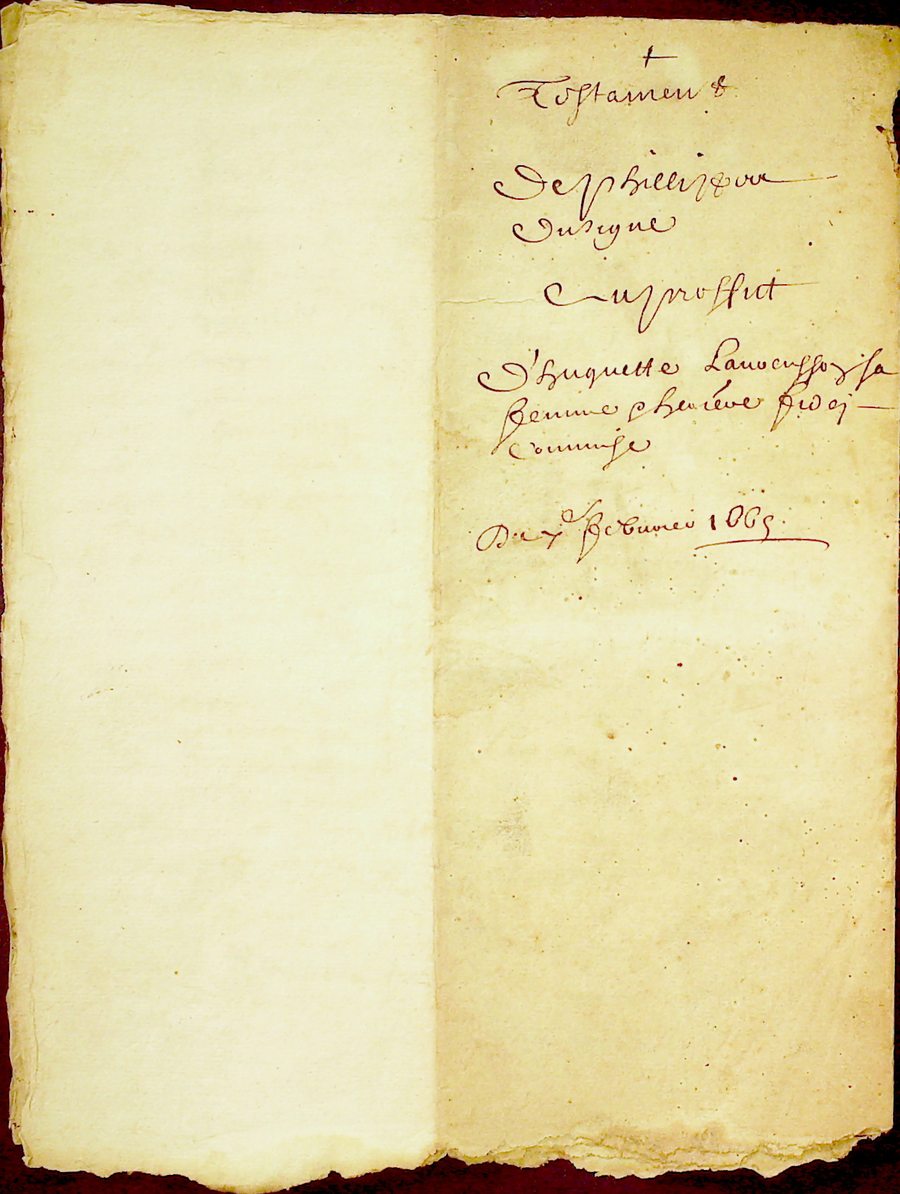 Testament
De phillippe
Duvigne
Au proffict
D'huguette Lavocasson sa
femme & herière fidei
Commise
Du 7e febvrier 1665.